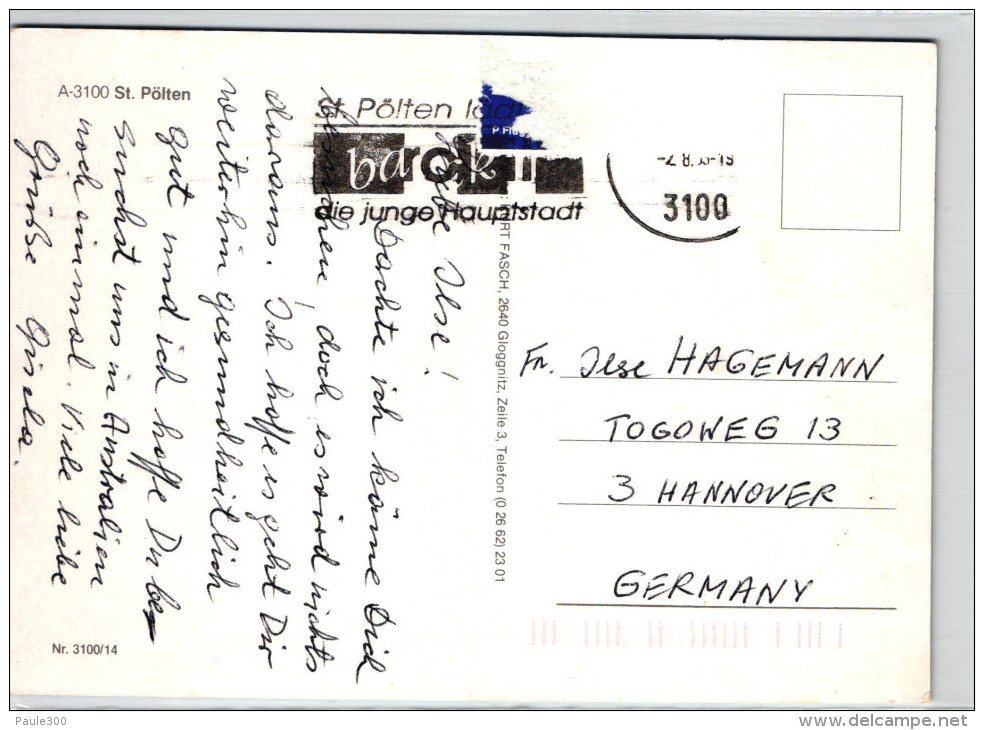 A-3100 St. Pölten
St. Pölten läd
barock
die junge Hauptstadt
3100
Liebe Ilse!
Dachte ich käme Dich
besuchen, doch es wird nichts
daraus. Ich hoffe es geht Dir
weiterhin gesundheitlich
gut und ich hoffe Du be-
suchst uns in Australien
noch einmal. Viele liebe
Grüße Gisela.
RT FASCH, 2640 Gloggnitz, Zeile 3, Telefon (0 26 62) 23 01
Fr. Ilse HAGEMANN
TOGOWEG 13
3 HANNOVER
GERMANY
Nr. 3100/14
Paule300
delcampe.net